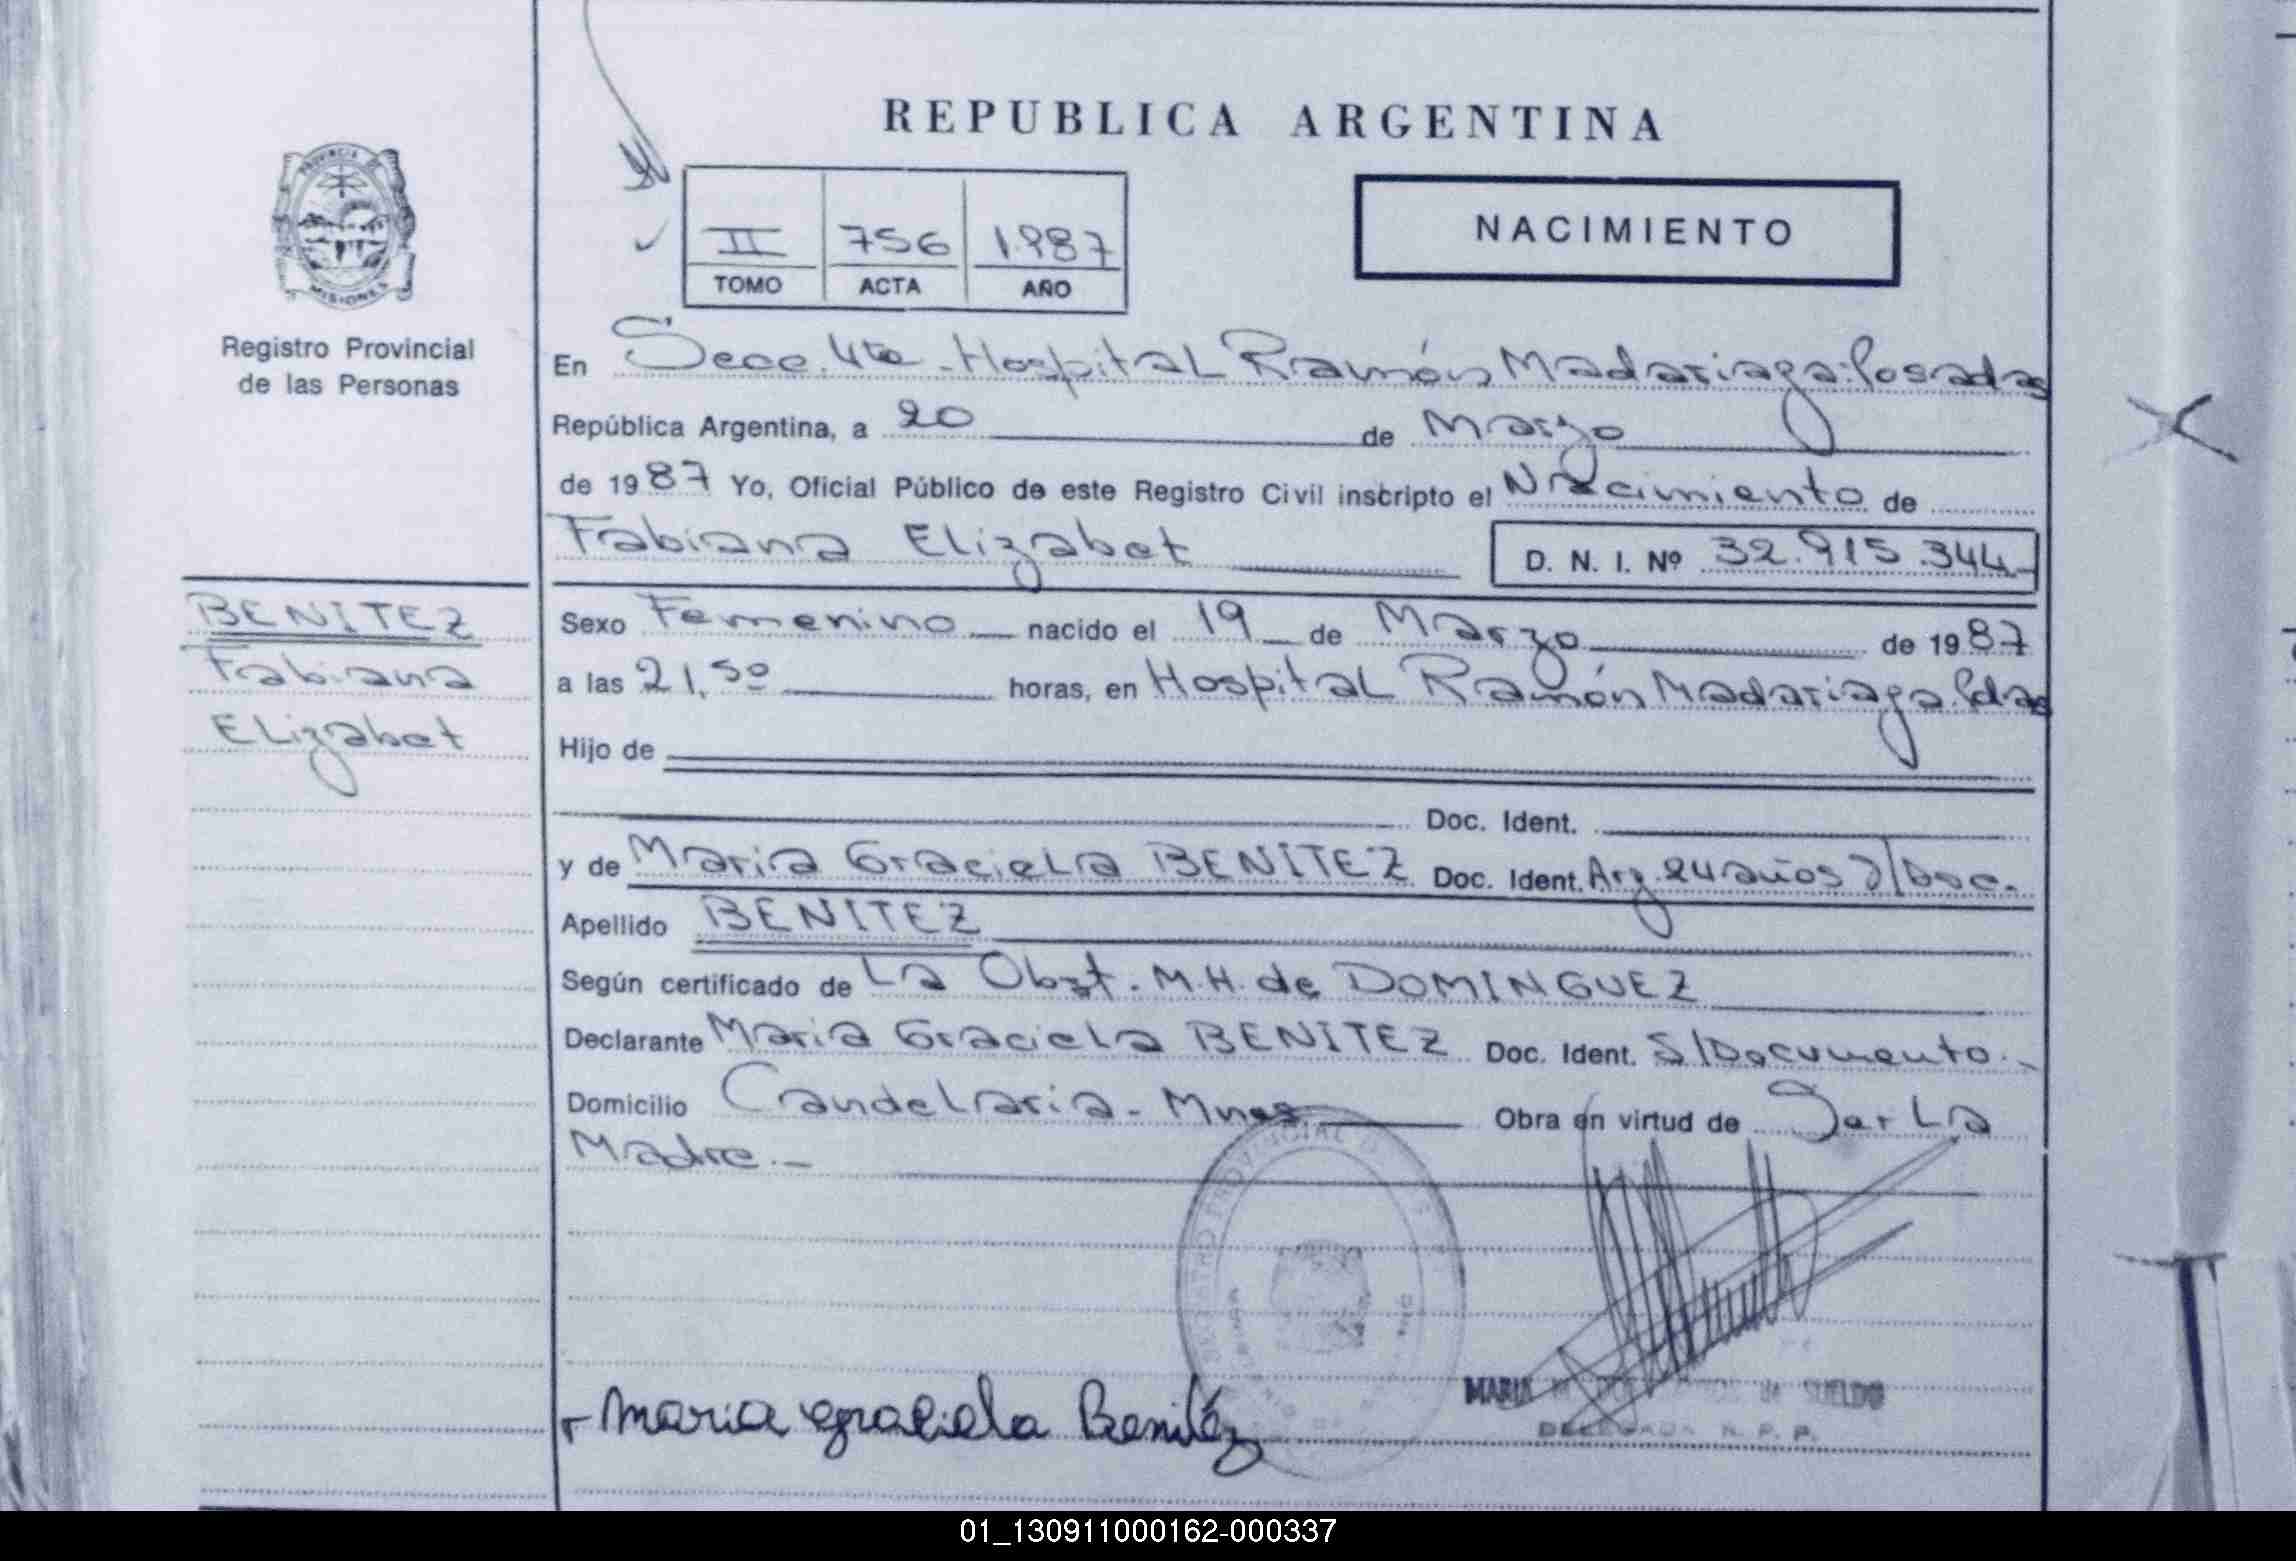 REPUBLICA ARGENTINA
PROVINCIA DE
MISIONES
Registro Provincial
de las Personas
II 756 1987
TOMO ACTA AÑO
NACIMIENTO
En Secc. 4ta - Hospital Ramón Madariaga. Posadas
República Argentina, a 20 de Marzo
de 1987 Yo, Oficial Público de este Registro Civil inscripto el Nacimiento de
Fabiana Elizabet D. N. I. Nº 32.915.344
BENITEZ
Fabiana
Elizabet
Sexo Femenino nacido el 19 de Marzo de 1987
a las 21,50 horas, en Hospital Ramón Madariaga. Pdas
Hijo de
Doc. Ident.
y de Maria Graciela BENITEZ Doc. Ident. Arg. 24 años Doc.
Apellido BENITEZ
Según certificado de La Obst. M.H. de DOMINGUEZ
Declarante Maria Graciela BENITEZ Doc. Ident. S/Documento.-
Domicilio Candelaria - Mnes Obra en virtud de Ser La
Madre.-
Maria Graciela Benitéz
MARIA SUELDO
DELEGADA R. P. P.
01_130911000162-000337